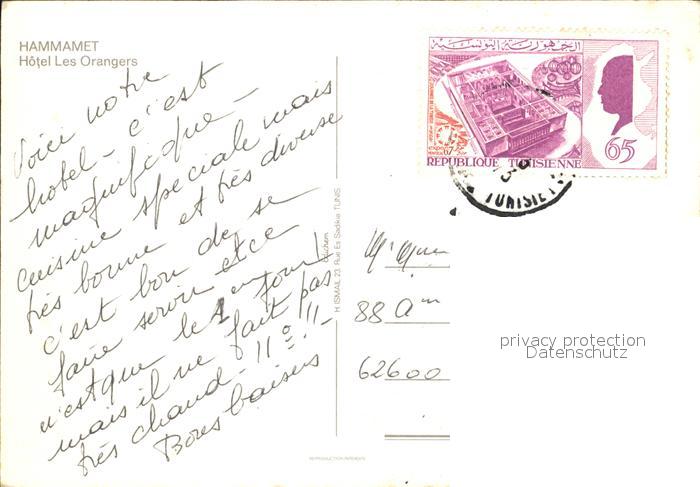 HAMMAMET
Hôtel Les Orangers
Voici notre
hotel - c'est
magnifique -
cuisine speciale mais
très bonne et très diverse
c'est bon de se
faire servir et ce
n'est que le 1er jour !
mais il ne fait pas
très chaud - 11° !!
Bons baisers
H ISMAIL 23, Rue Es Sadikia TUNIS
REPRODUCTION INTERDITE
الجمهورية التونسية
67
REPUBLIQUE TUNISIENNE
65
TUNISIE
88 A
62600
privacy protection
Datenschutz